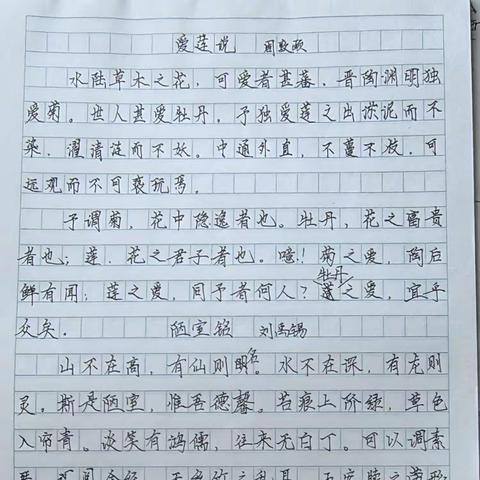 爱莲说 周敦颐
水陆草木之花，可爱者甚蕃，晋陶渊明独
爱菊。世人甚爱牡丹，予独爱莲之出淤泥而不
染，濯清涟而不妖。中通外直，不蔓不枝，可
远观而不可亵玩焉。
予调菊，花中隐逸者也。牡丹，花之富贵
者也；莲，花之君子者也。噫！菊之爱，陶后
鲜有闻；莲之爱，同予者何人？牡丹之爱，宜乎
众矣。 陋室铭 刘禹锡
山不在高，有仙则名。水不在深，有龙则
灵。斯是陋室，惟吾德馨。苔痕上阶绿，草色
入帘青。谈笑有鸿儒，往来无白丁。可以调素